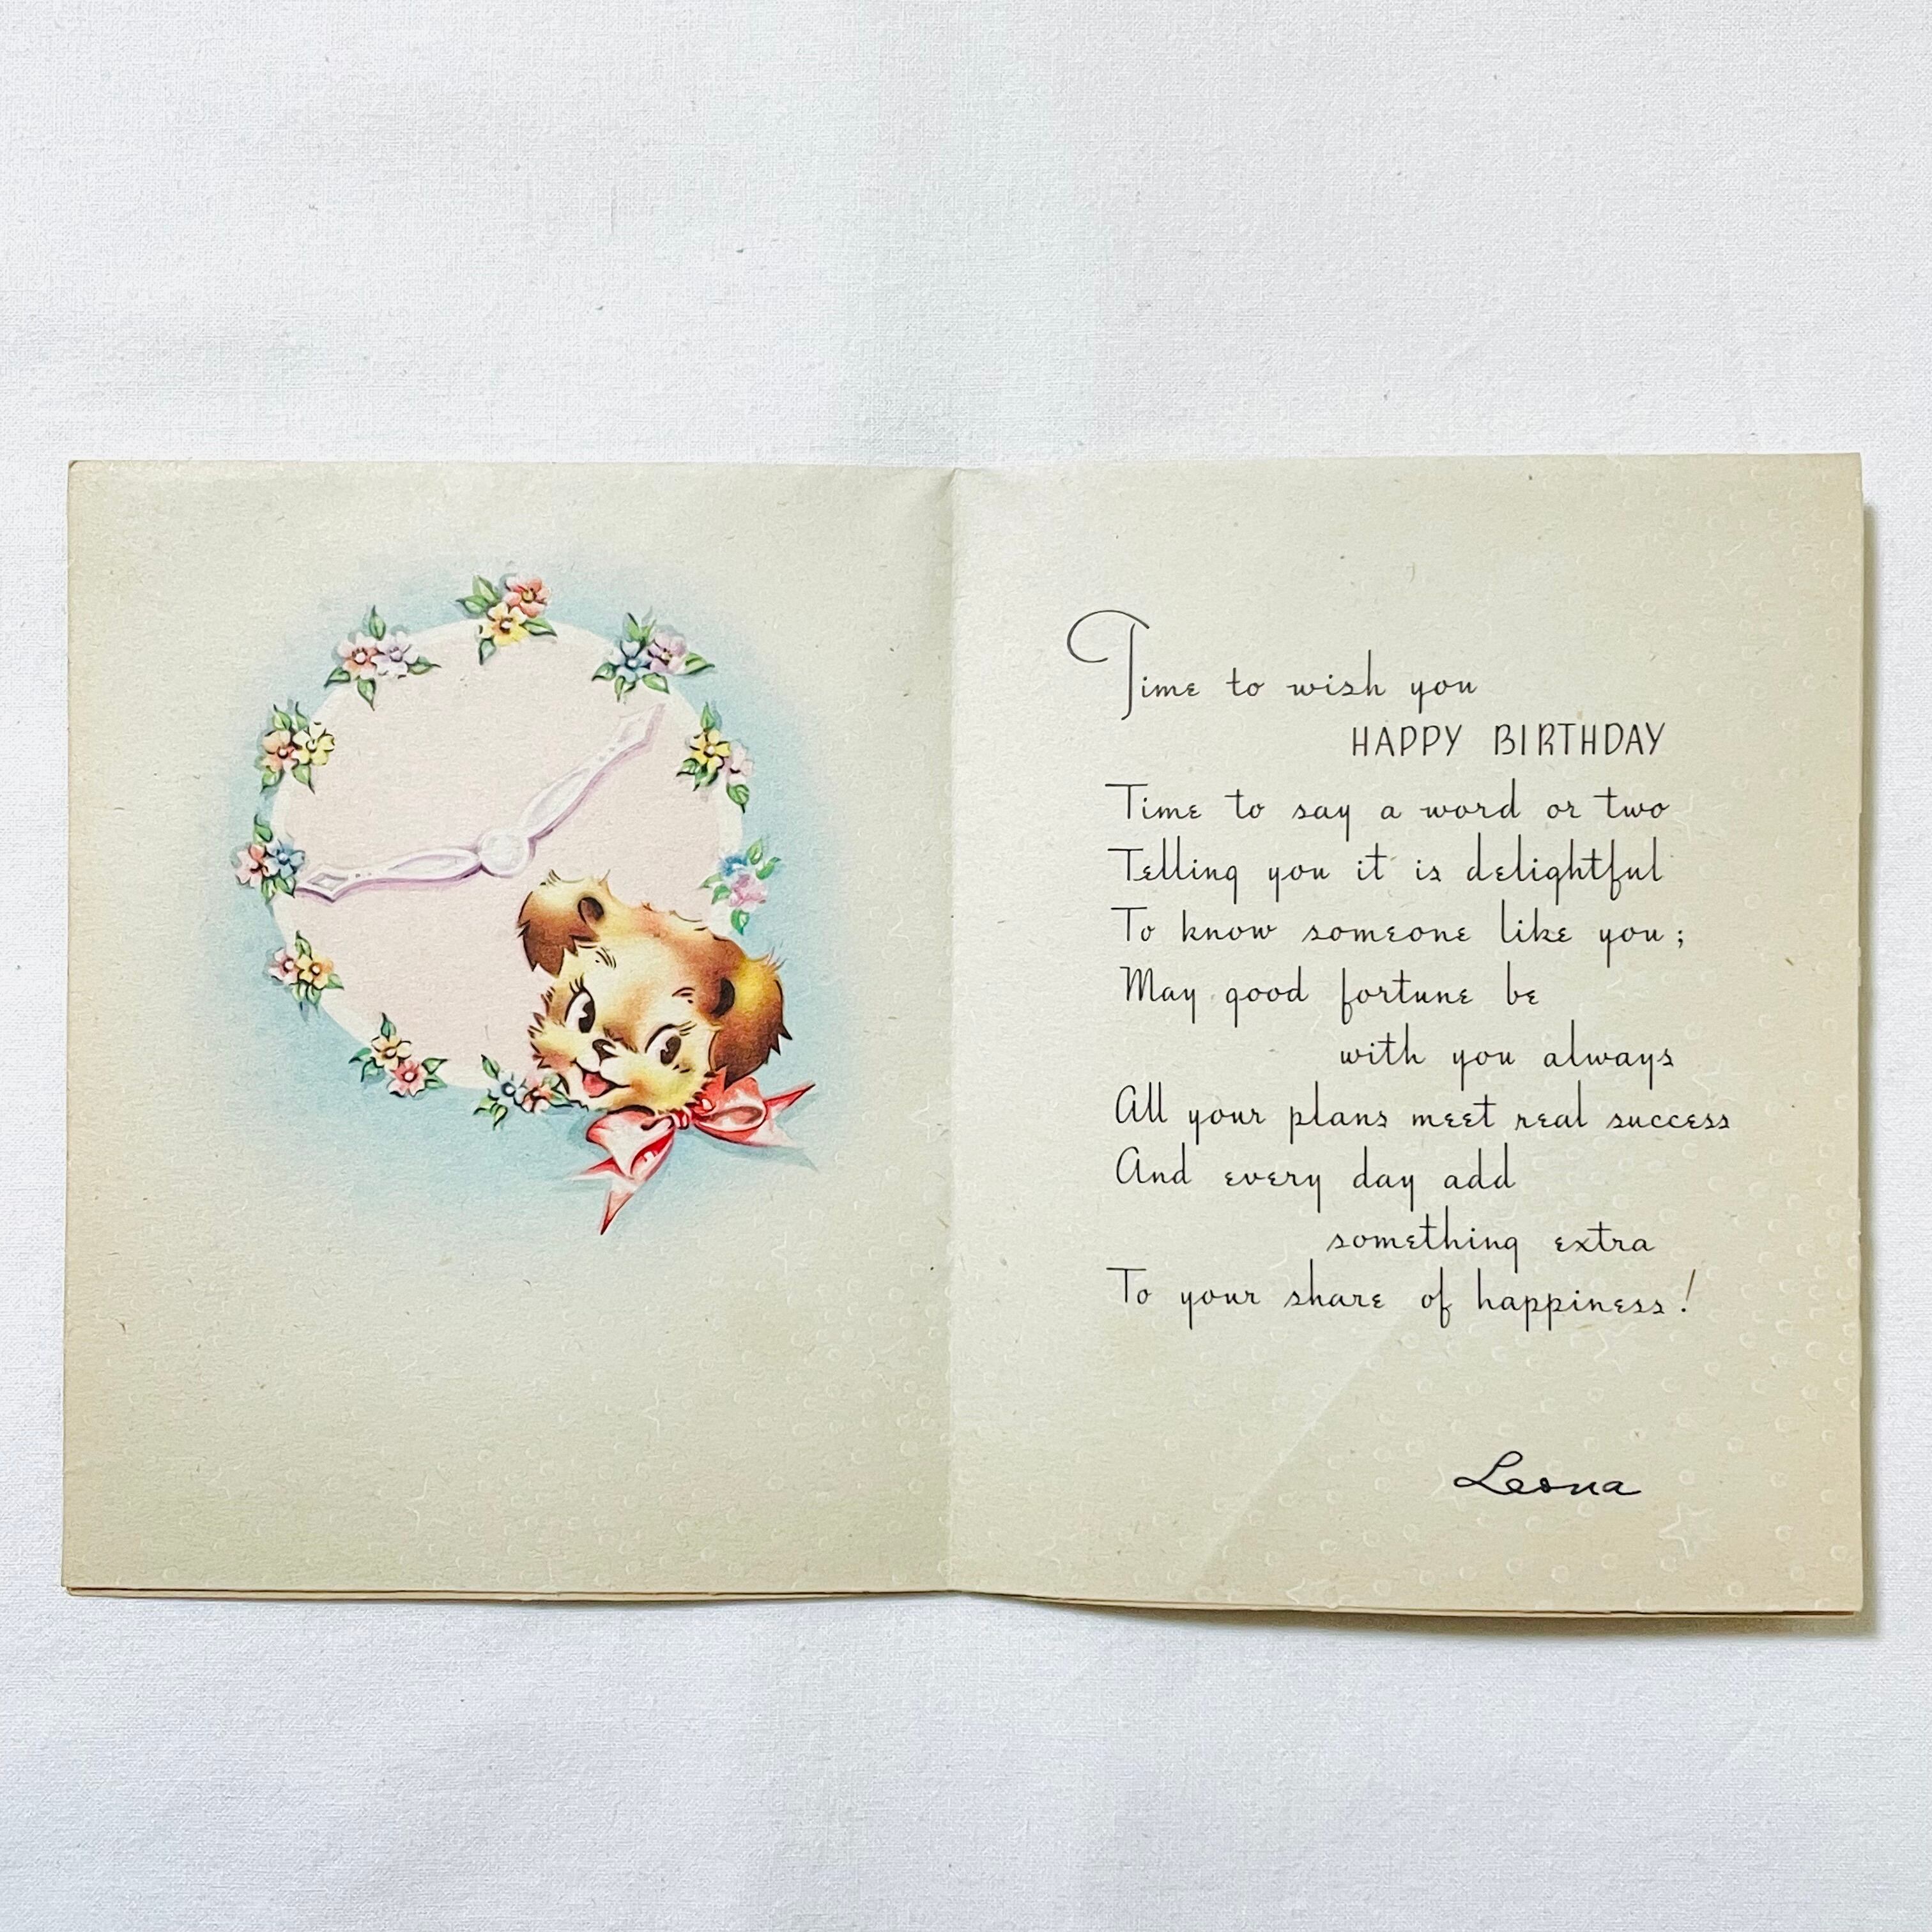 Time to wish you
HAPPY BIRTHDAY
Time to say a word or two
Telling you it is delightful
To know someone like you;
May good fortune be
with you always
All your plans meet real success
And every day add
something extra
To your share of happiness!
Leona